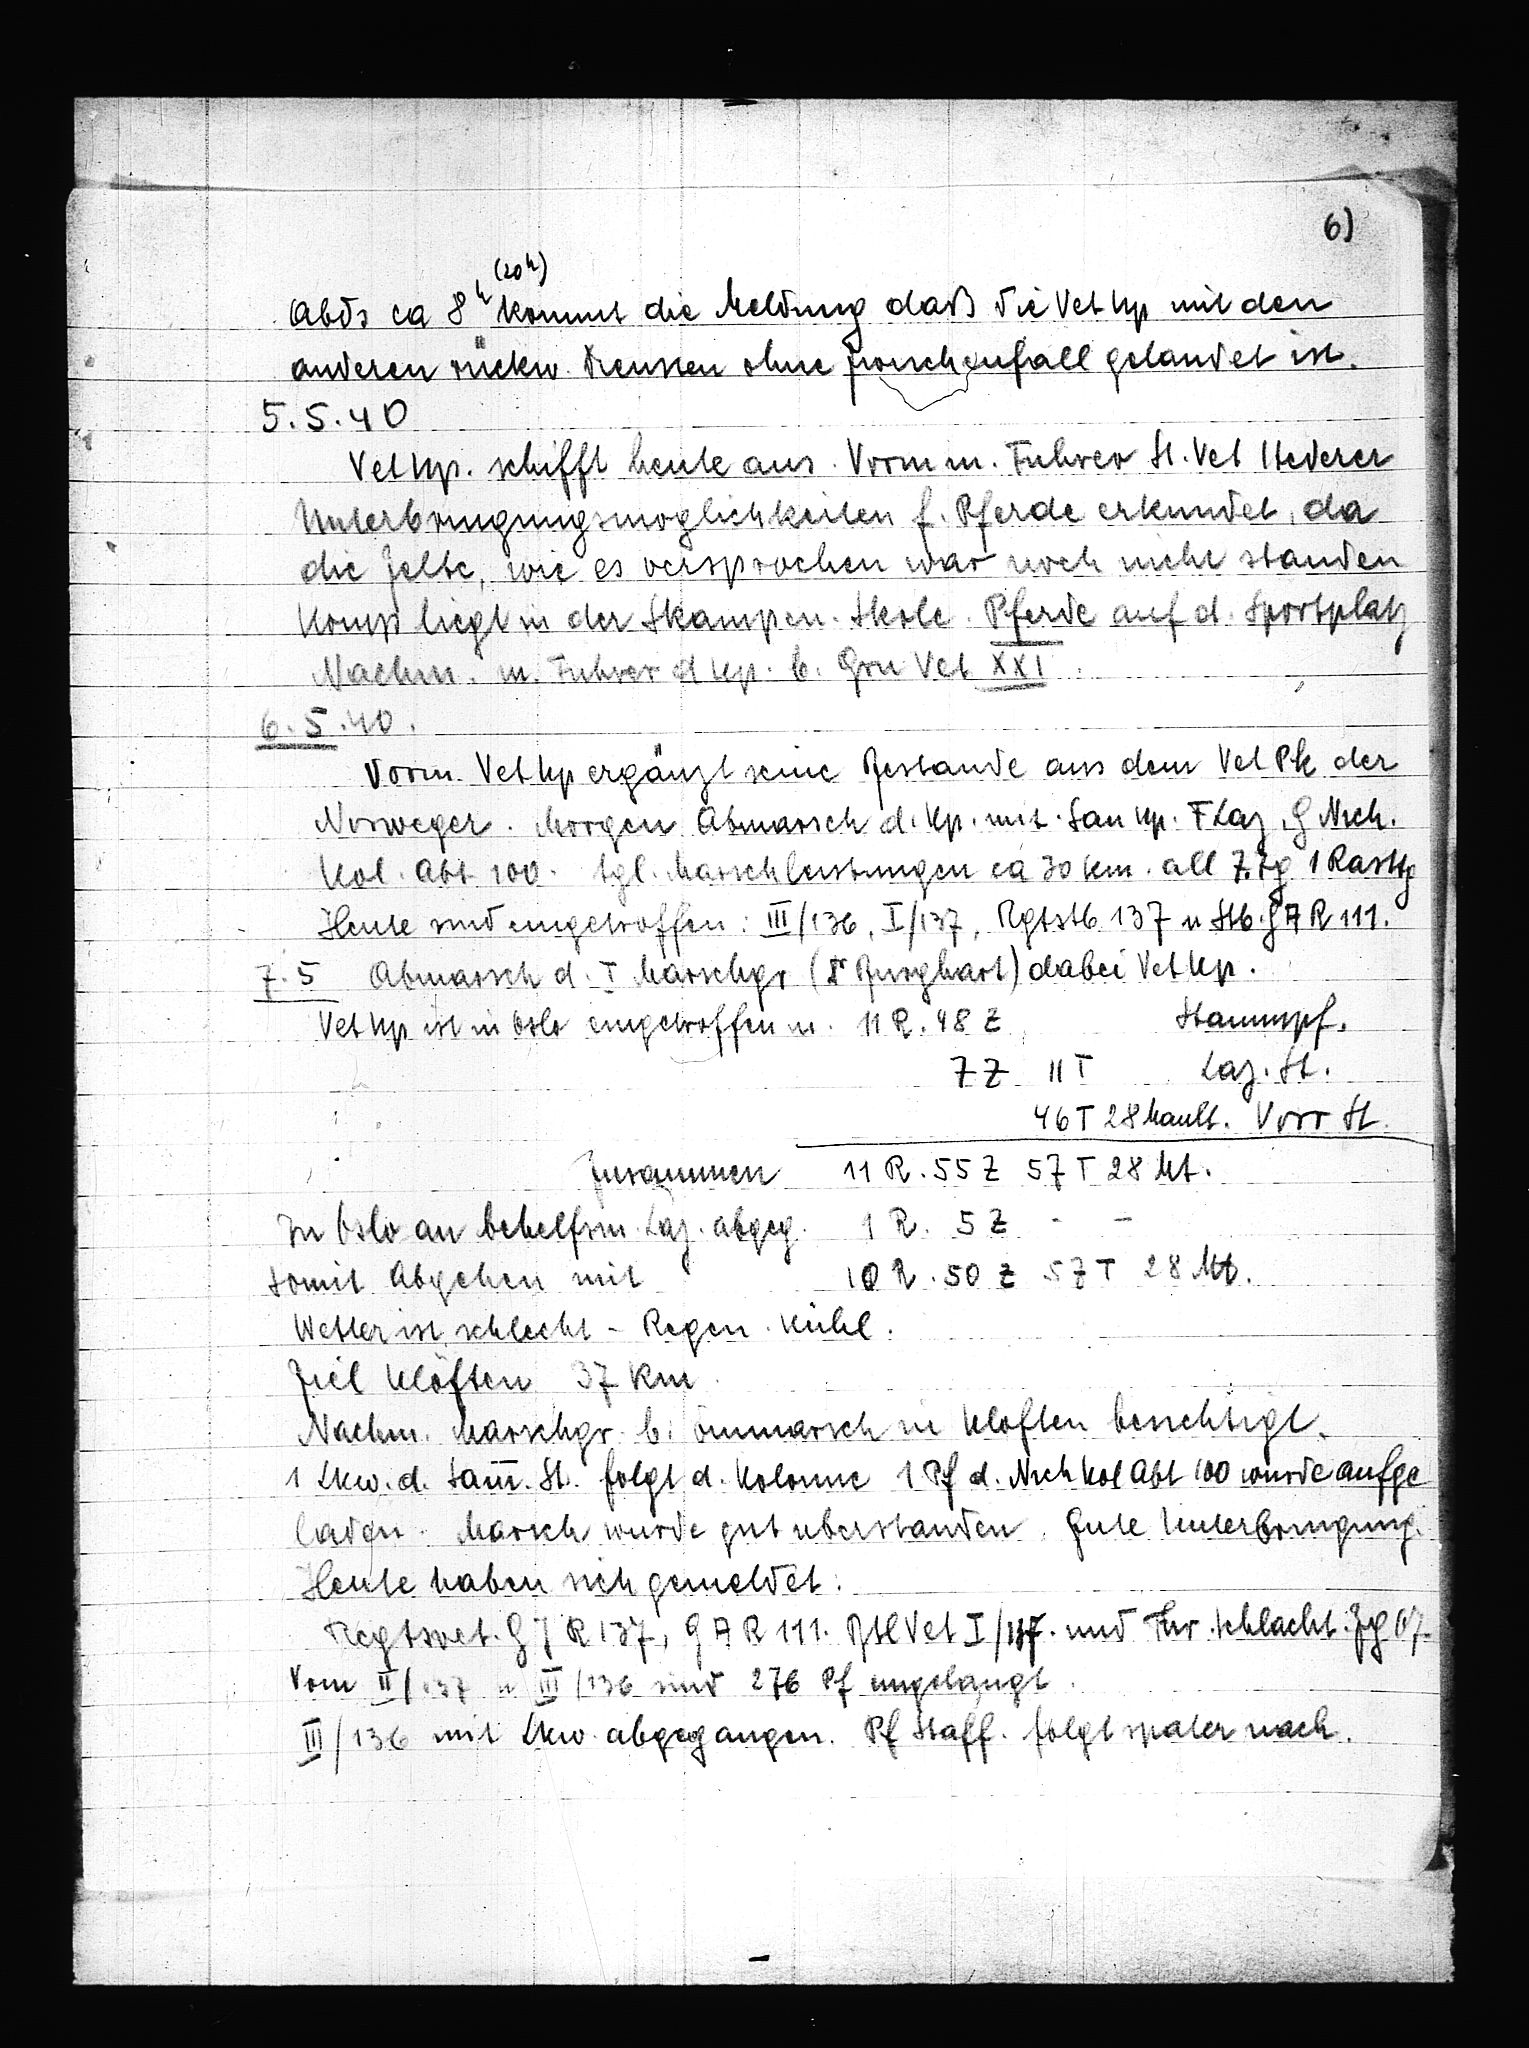 6)
(20h)
Abds ca 8h kommt die Meldung daß die VetKp mit den
anderen rückw. Diensten ohne Zwischenfall gelandet ist.
5.5.40
VetKp. schifft heute aus. Vorm m. Fuhrer St. Vet Hederer
Unterbringungsmoglichkeiten f. Pferde erkundet, da
die Zelte, wie es versprochen war noch nicht standen
Komp liegt in der Skampen. Skole. Pferde auf d. Sportplatz
Nachm. m. Fuhrer d Kp. b. Gru Vet XXI.
6.5.40.
Vorm. VetKp ergänzt seine Bestande aus dem Vet Pk der
Norweger. Morgen Abmarsch d. Kp. mit San Kp. F Laz, G Nsch.
Kol. Abt 100. tgl. Marschleistungen ca 30 km. all 7. Tg 1 Rasttg
Heute sind eingetroffen: III/136, I/137, Rgtstb 137 u Stb. G A R 111.
7.5 Abmarsch d. I Marschgr (Burghart) dabei VetKp.
VetKp ist in Oslo eingetroffen m. 11 R. 48 Z Stammpf.
7 Z 11 T Laz. St.
46 T 28 Mault. Vorr St.
Zusammen 11 R. 55 Z 57 T 28 Mt.
In Oslo an behelfsm. Laz. abgeg. 1 R. 5 Z - -
Somit Abgehen mit 10 R. 50 Z 57 T 28 Mt.
Wetter ist schlecht - Regen. Kühl.
Ziel Klöften 37 Km
Nachm. Marschgr. b. Einmarsch in Kloften besichtigt.
1 Lkw. d. Sam. St. folgt d. Kolonne 1 Pf d. Nsch Kol Abt 100 wurde aufge
laden. Marsch wurde gut uberstanden. Gute Unterbringung.
Heute haben sich gemeldet:
Regtsvet. G J R 137, G A R 111. Btl Vet I/137. und Fhr. Schlacht. Zg 67.
Vom II/137 u III/136 sind 276 Pf eingelangt.
III/136 mit Lkw. abgegangen. Pf Staff. folgt spater nach.